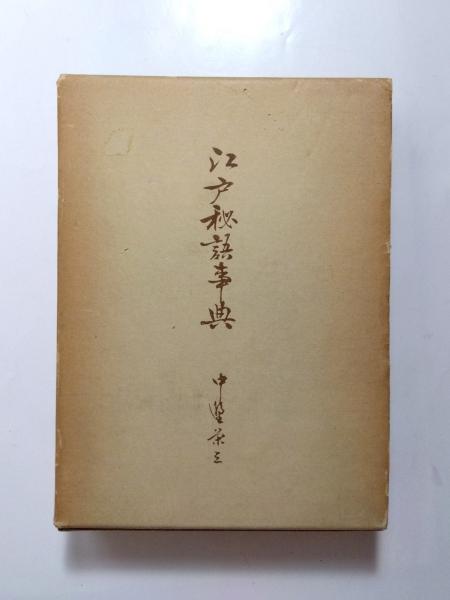 江戸秘語事典
中野栄三